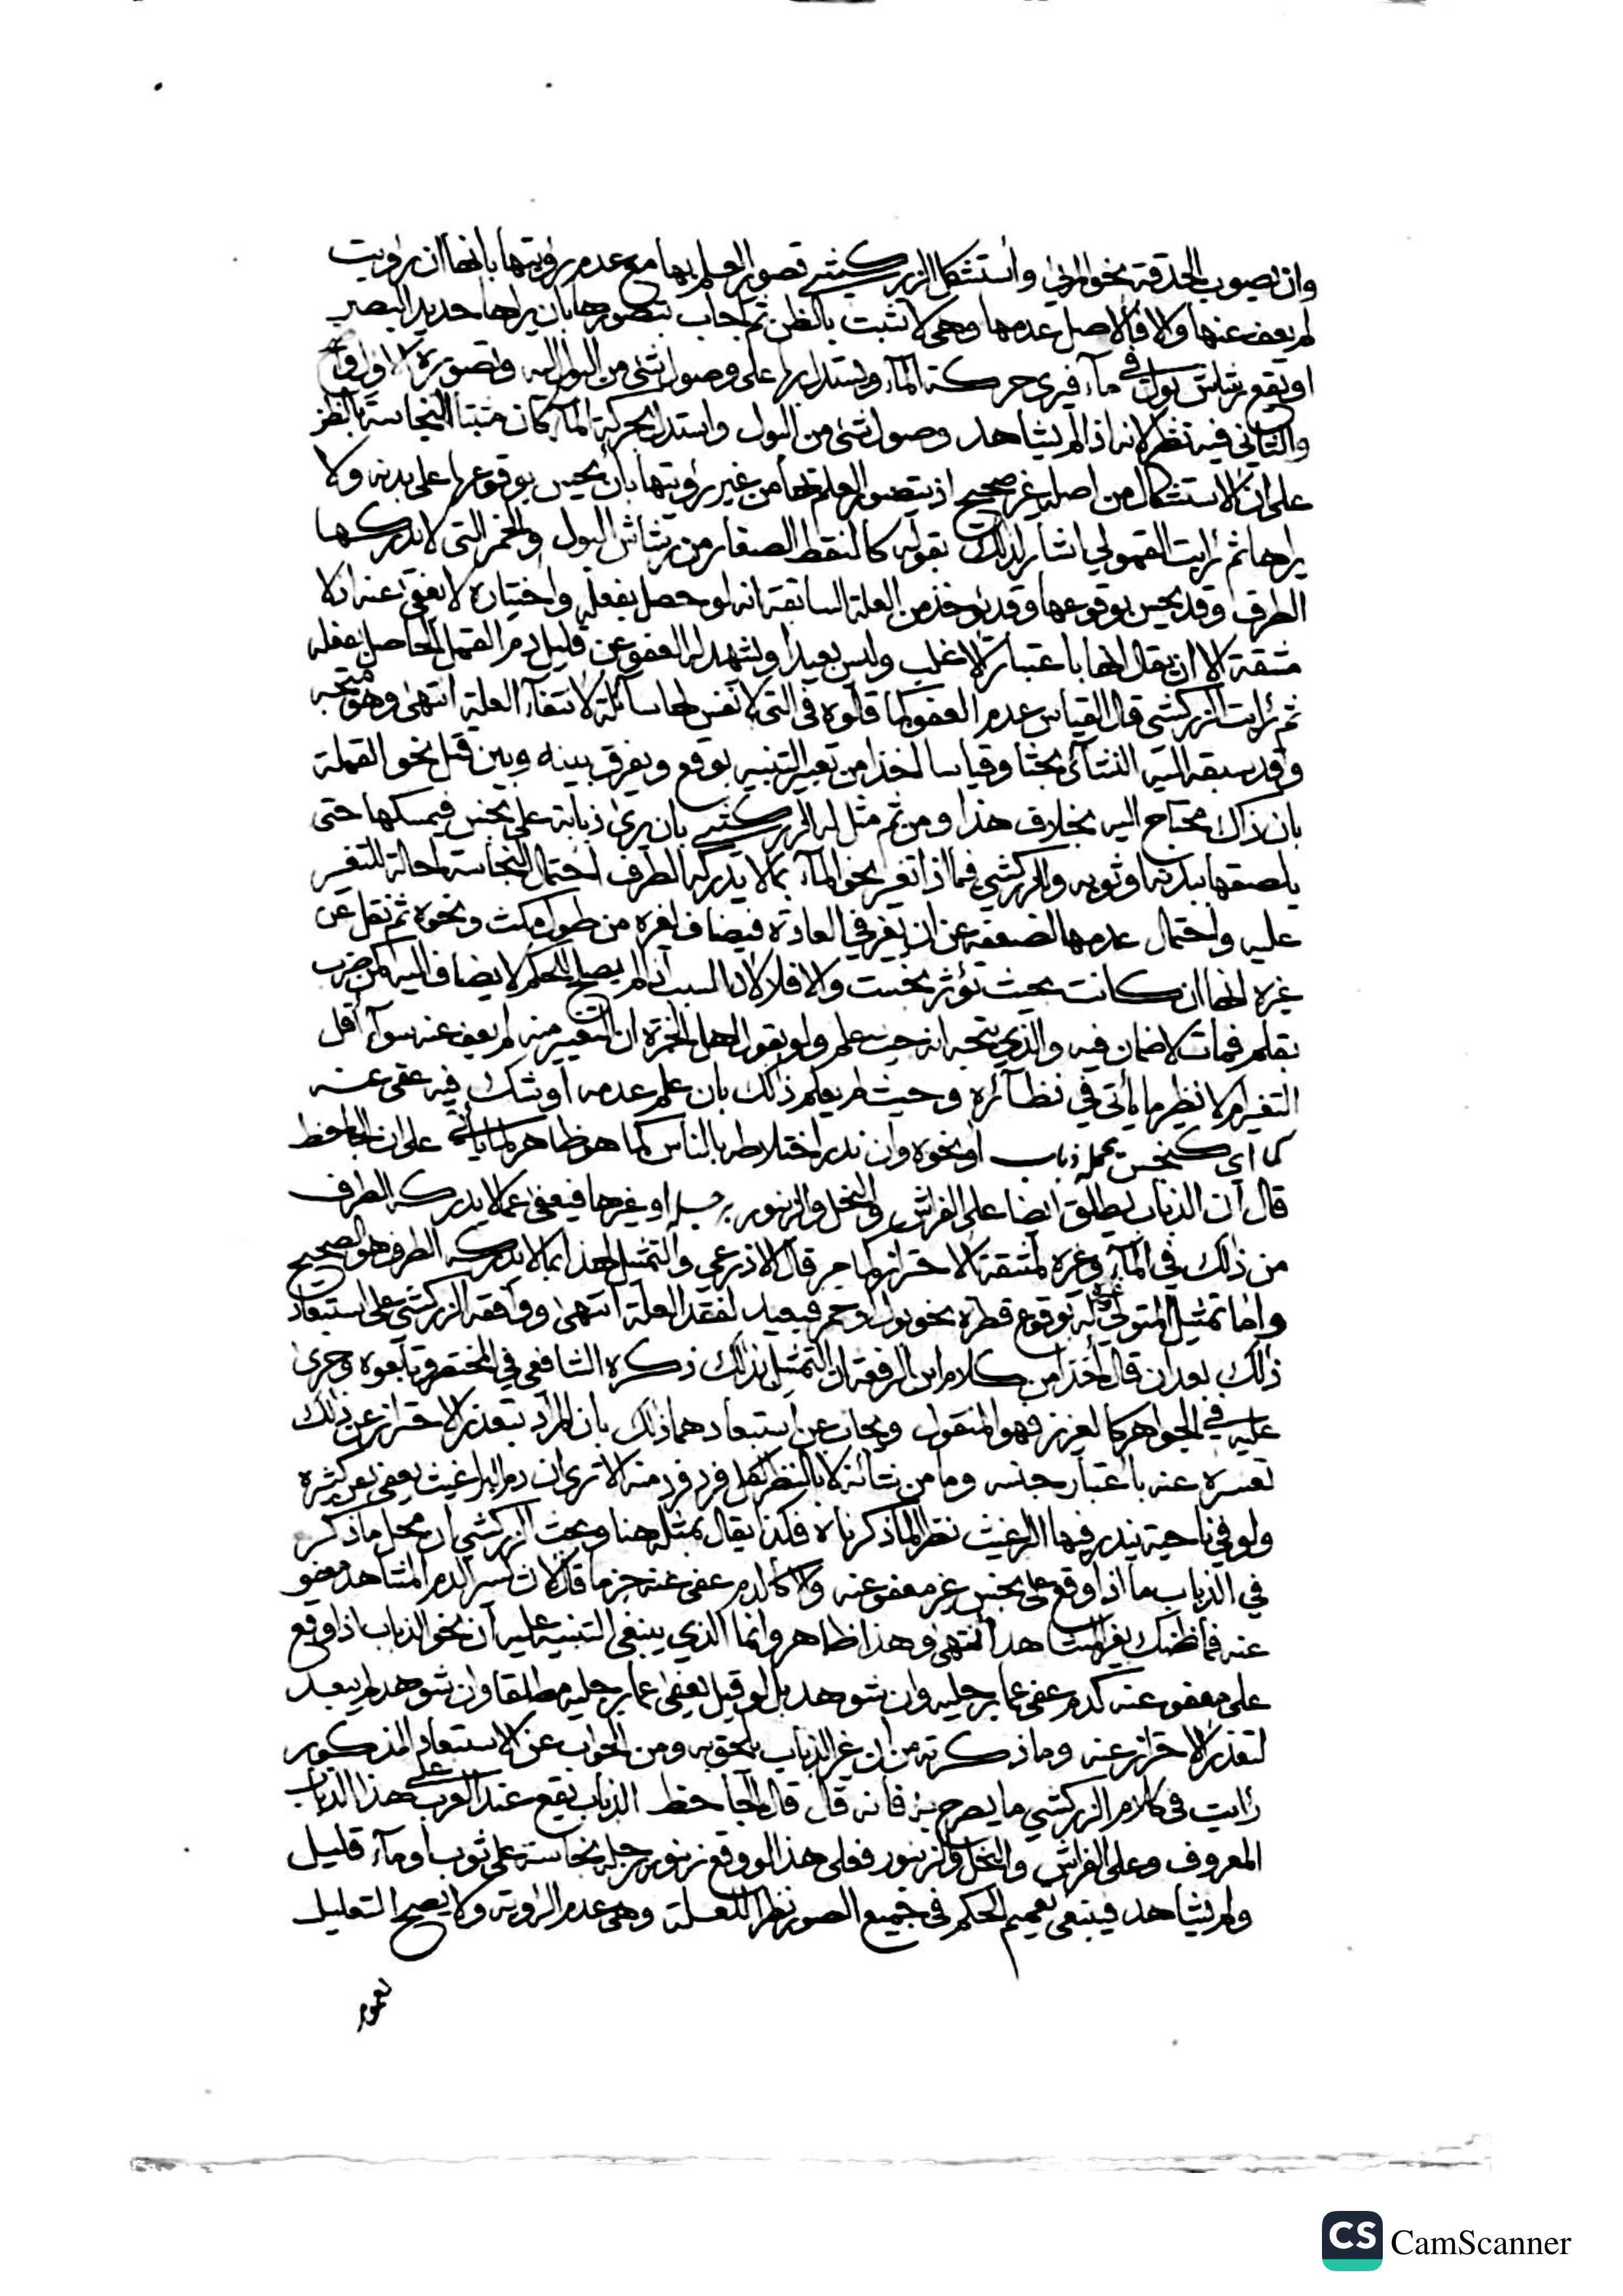 وان يصوب الحدقة نحو المرئي واستشكل الزركشي تصور العلم بها مع عدم رؤيتها بانها ان رؤيت
لم يعف عنها والا فالاصل عدمها وهي لا تثبت بالظن ثم اجاب بتصورها بان يراها حديد البصر
او يقع رشاش بول في ماء فيرى حركة الماء ويستدل بها على وصول شئ من البول اليه وتصويره الاول واقع
والثاني فيه نظر لانه اذا لم يشاهد وصول شئ من البول واستدل بحركة الماء كان مثبتا للنجاسة بالظن
على ان الاستشكال من اصله غير صحيح اذ يتصور العلم بها من غير رؤيتها بان يحس بوقوعها على بدنه ولا
يراها ثم رايت القمولي اشار لذلك بقوله كالنقط الصغار من رشاش البول والخمر التي لا يدركها
الطرف وقد يحس بوقوعها وقد يؤخذ من العلة السابقة انه لو حصل بفعله واختياره لا يعفى عنه اذ لا
مشقة الا ان يقال انها باعتبار الاغلب وليس بعيدا ويشهد له العفو عن قليل دم القمل الحاصل بفعله
ثم رايت الزركشي قال القياس عدم العفو كما قالوه في التي لا نفس لها سائلة لانتفاء العلة انتهى وهو متجه
وقد سبقه اليه النشائي بحثا وقياسا اخذا من تعبير التنبيه بوقع ويفرق بينه وبين قتل نحو القملة
بان ذاك محتاج اليه بخلاف هذا ومن ثم مثل له الزركشي بان يرى ذبابة على نجس فيمسكها حتى
يلصقها ببدنه او ثوبه والزركشي فيما اذا تغير نحو الماء بما لا يدركه الطرف احتمال النجاسة احالة للتغير
عليه واحتمال عدمها لضعفه عن ان يغير في العادة فيضاف لغيره من طول مكث ونحوه ثم نقل عن
غيره انها ان كانت بحيث تؤثر نجست والا فلا لان السبب اذا لم يصلح للحكم لا يضاف اليه كمن ضرب
بقلم فمات لا ضمان فيه والذي يتجه انه حيث علم ولو بقول اهل الخبرة ان التغيير منه لم يعف عنه سواء أقل
التغير ام لا نظير ما ياتي في نظائره وحيث لم يعلم ذلك بان علم عدمه او شك فيه عفي عنه
كما اي كنجس يحمله ذباب او نحوه وان ندر اختلاطه بالناس كما هو ظاهر كما ياتي على ان الجاحظ
قال ان الذباب يطلق ايضا على الفراش والنحل والزنبور برجله او غيرها فيعفى عما لا يدركه الطرف
من ذلك في الماء وغيره لمشقة الاحتراز كما مر قال الاذرعي والتمثيل لهذا بما لا يدركه الطرف هو الصحيح
واما تمثيل المتولي وغيره له بوقوع قطرة نحو بول او خمر فبعيد لفقد العلة انتهى ووافقه الزركشي على استبعاد
ذلك بعد ان قال اخذا من كلام ابن الرفعة ان التمثيل بذلك ذكره الشافعي في المختصر وتابعوه وجرى
عليه في الجواهر كالعزيز فهو المنقول ويجاب عن استبعادهما ذلك بان المراد بتعذر الاحتراز عن ذلك
تعسره عنه باعتبار جنسه وما من شانه لا بالنظر لكل فرد فرد منه الا ترى ان دم البراغيث يعفى عن كثيره
ولو في ناحية يندر فيها البرغيث نظرا لما ذكرناه فكذا يقال بمثله هنا وبحث الزركشي ان محل ما ذكر
في الذباب ما اذا وقع على نجس غير معفو عنه والا كالدم عفي عنه جزما قال لان يسير الدم المشاهد معفو
عنه فما ظنك بغير المشاهد انتهى وهذا ظاهر وانما الذي ينبغي التنبيه عليه ان نحو الذباب اذا وقع
على معفو عنه كدم عفي عما برجليه وان شوهد بل لو قيل يعفى عما برجليه مطلقا وان شوهد لم يبعد
لتعذر الاحتراز عنه وما ذكرته من ان غير الذباب يلحق به ومن الجواب عن الاستبعاد المذكور
رايت في كلام الزركشي ما يصرح به فانه قال قال الجاحظ الذباب يقع عند العرب على هذا الذباب
المعروف وعلى الفراش والنحل والزنبور فعلى هذا لو وقع زنبور برجله نجاسة على ثوب او ماء قليل
ولم يشاهد فينبغي تعميم الحكم في جميع الصور نظرا للعلة وهي عدم الرؤية ولا يصح التعليل
CS CamScanner